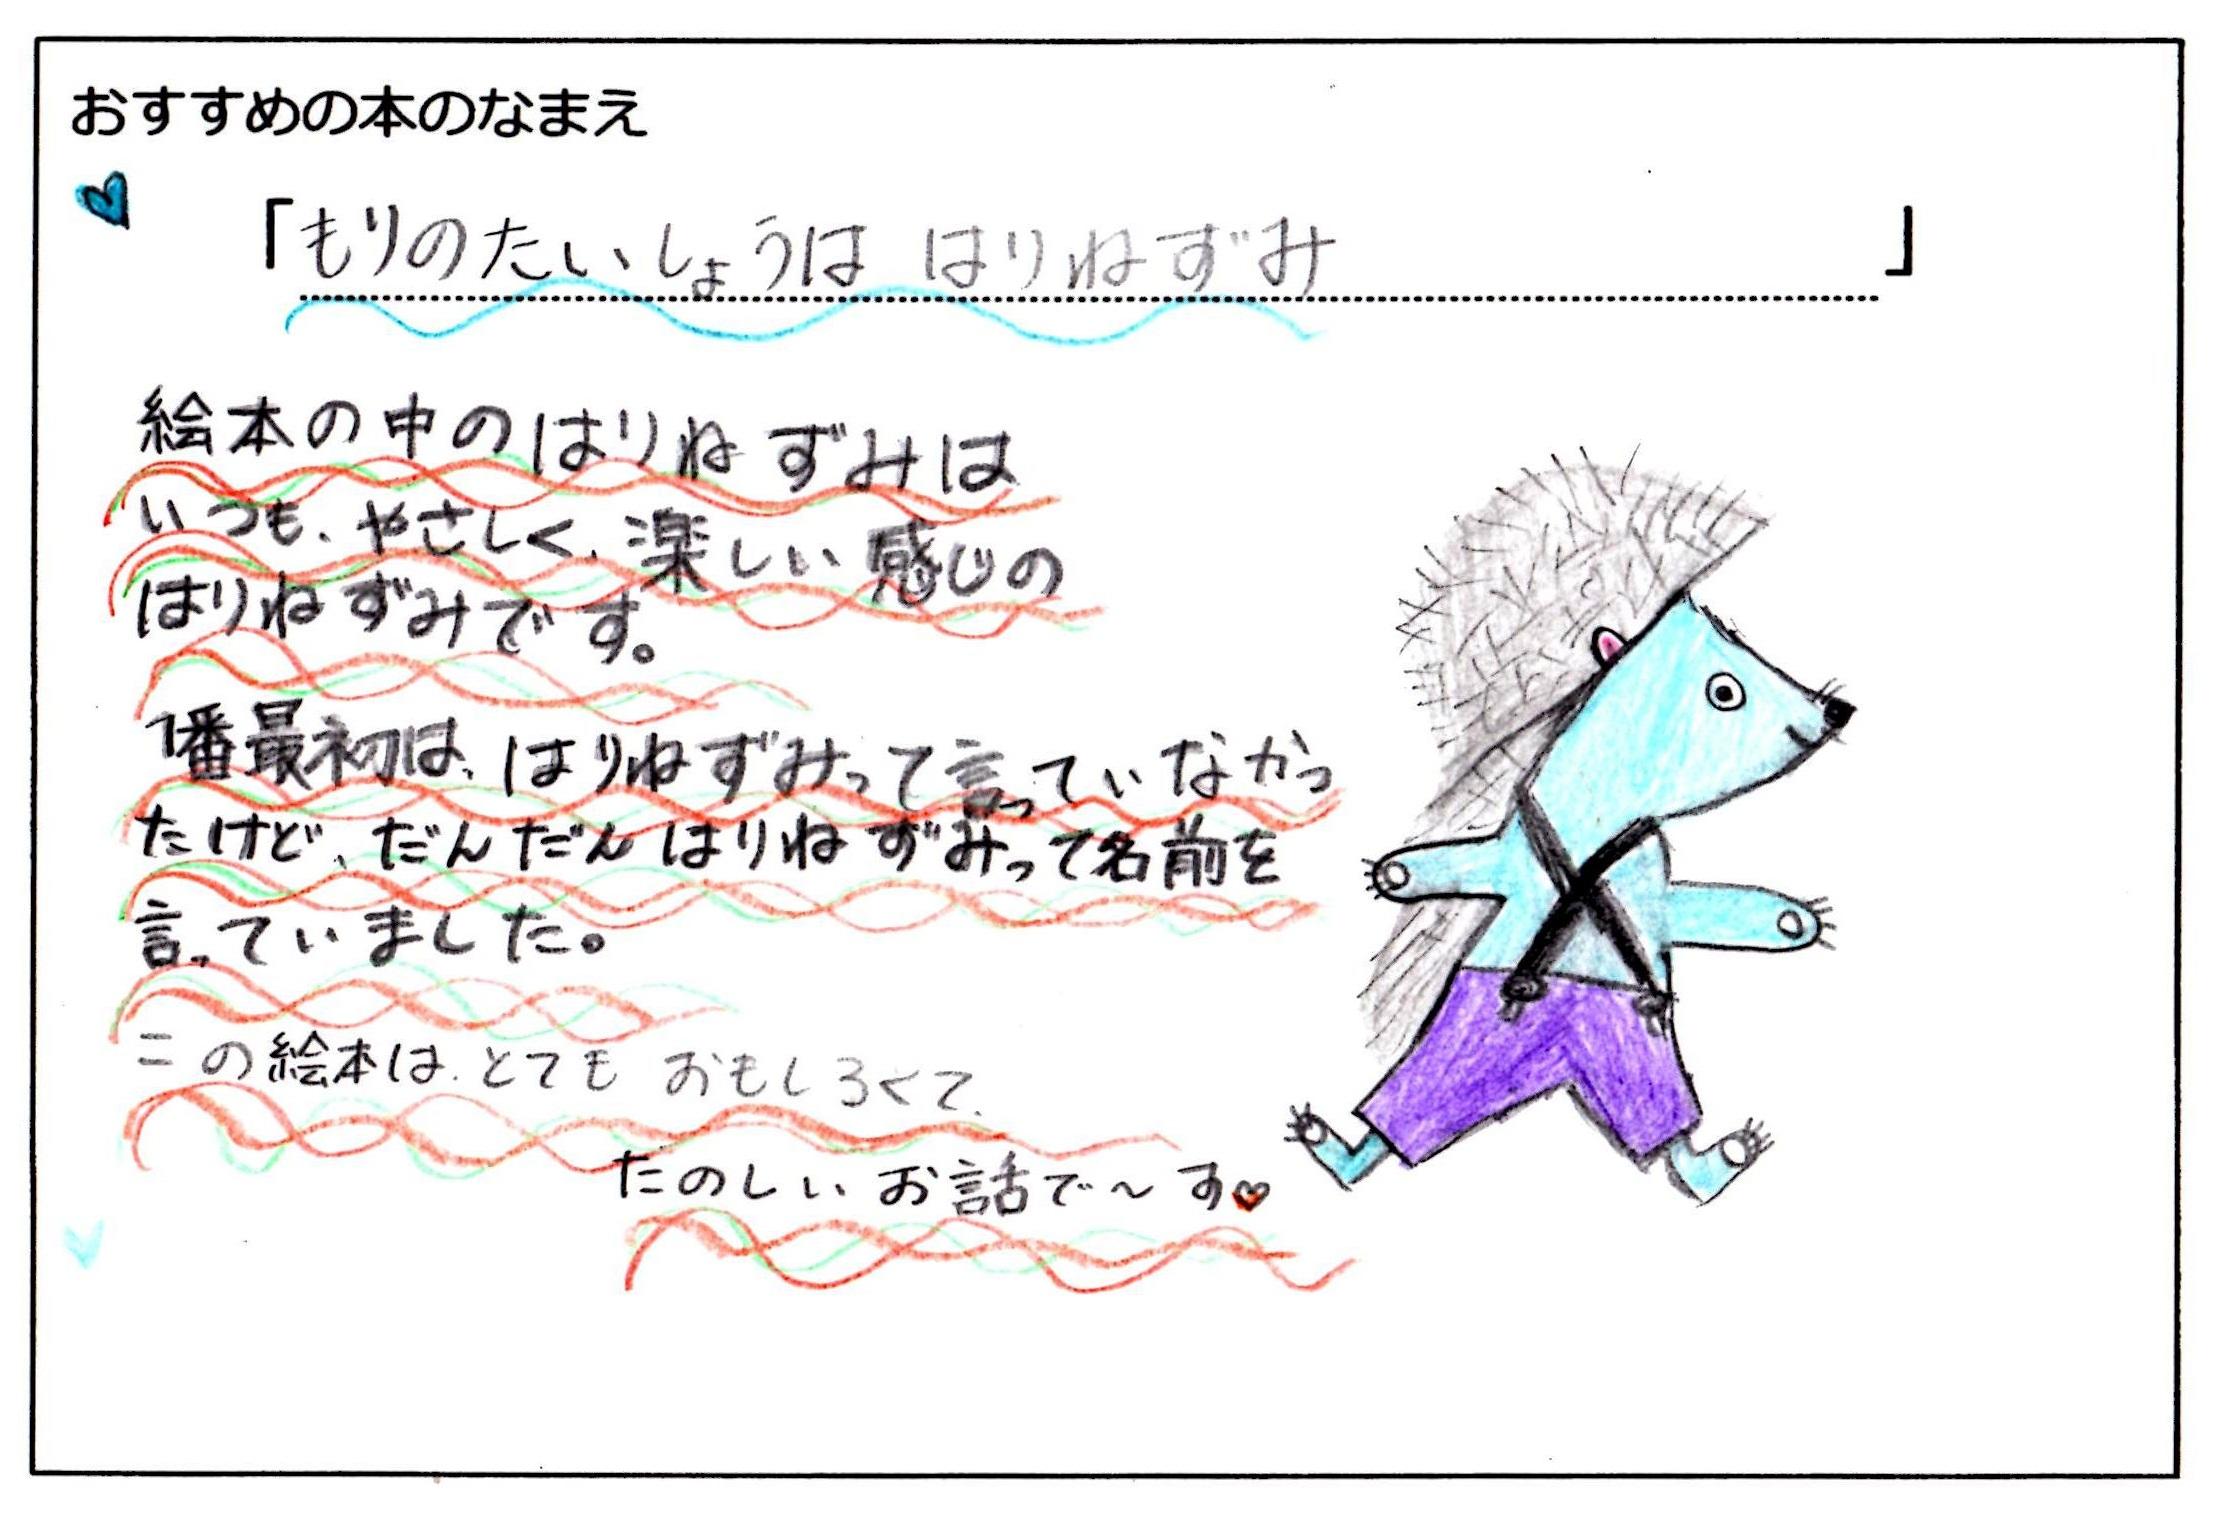 おすすめの本のなまえ
「もりのたいしょうは はりねずみ」
絵本の中のはりねずみは
いつも、やさしく、楽しい感じの
はりねずみです。
1番最初は、はりねずみって言っていなかっ
たけど、だんだんはりねずみって名前を
言っていました。
この絵本は、とても おもしろくて、
たのしい お話で～す